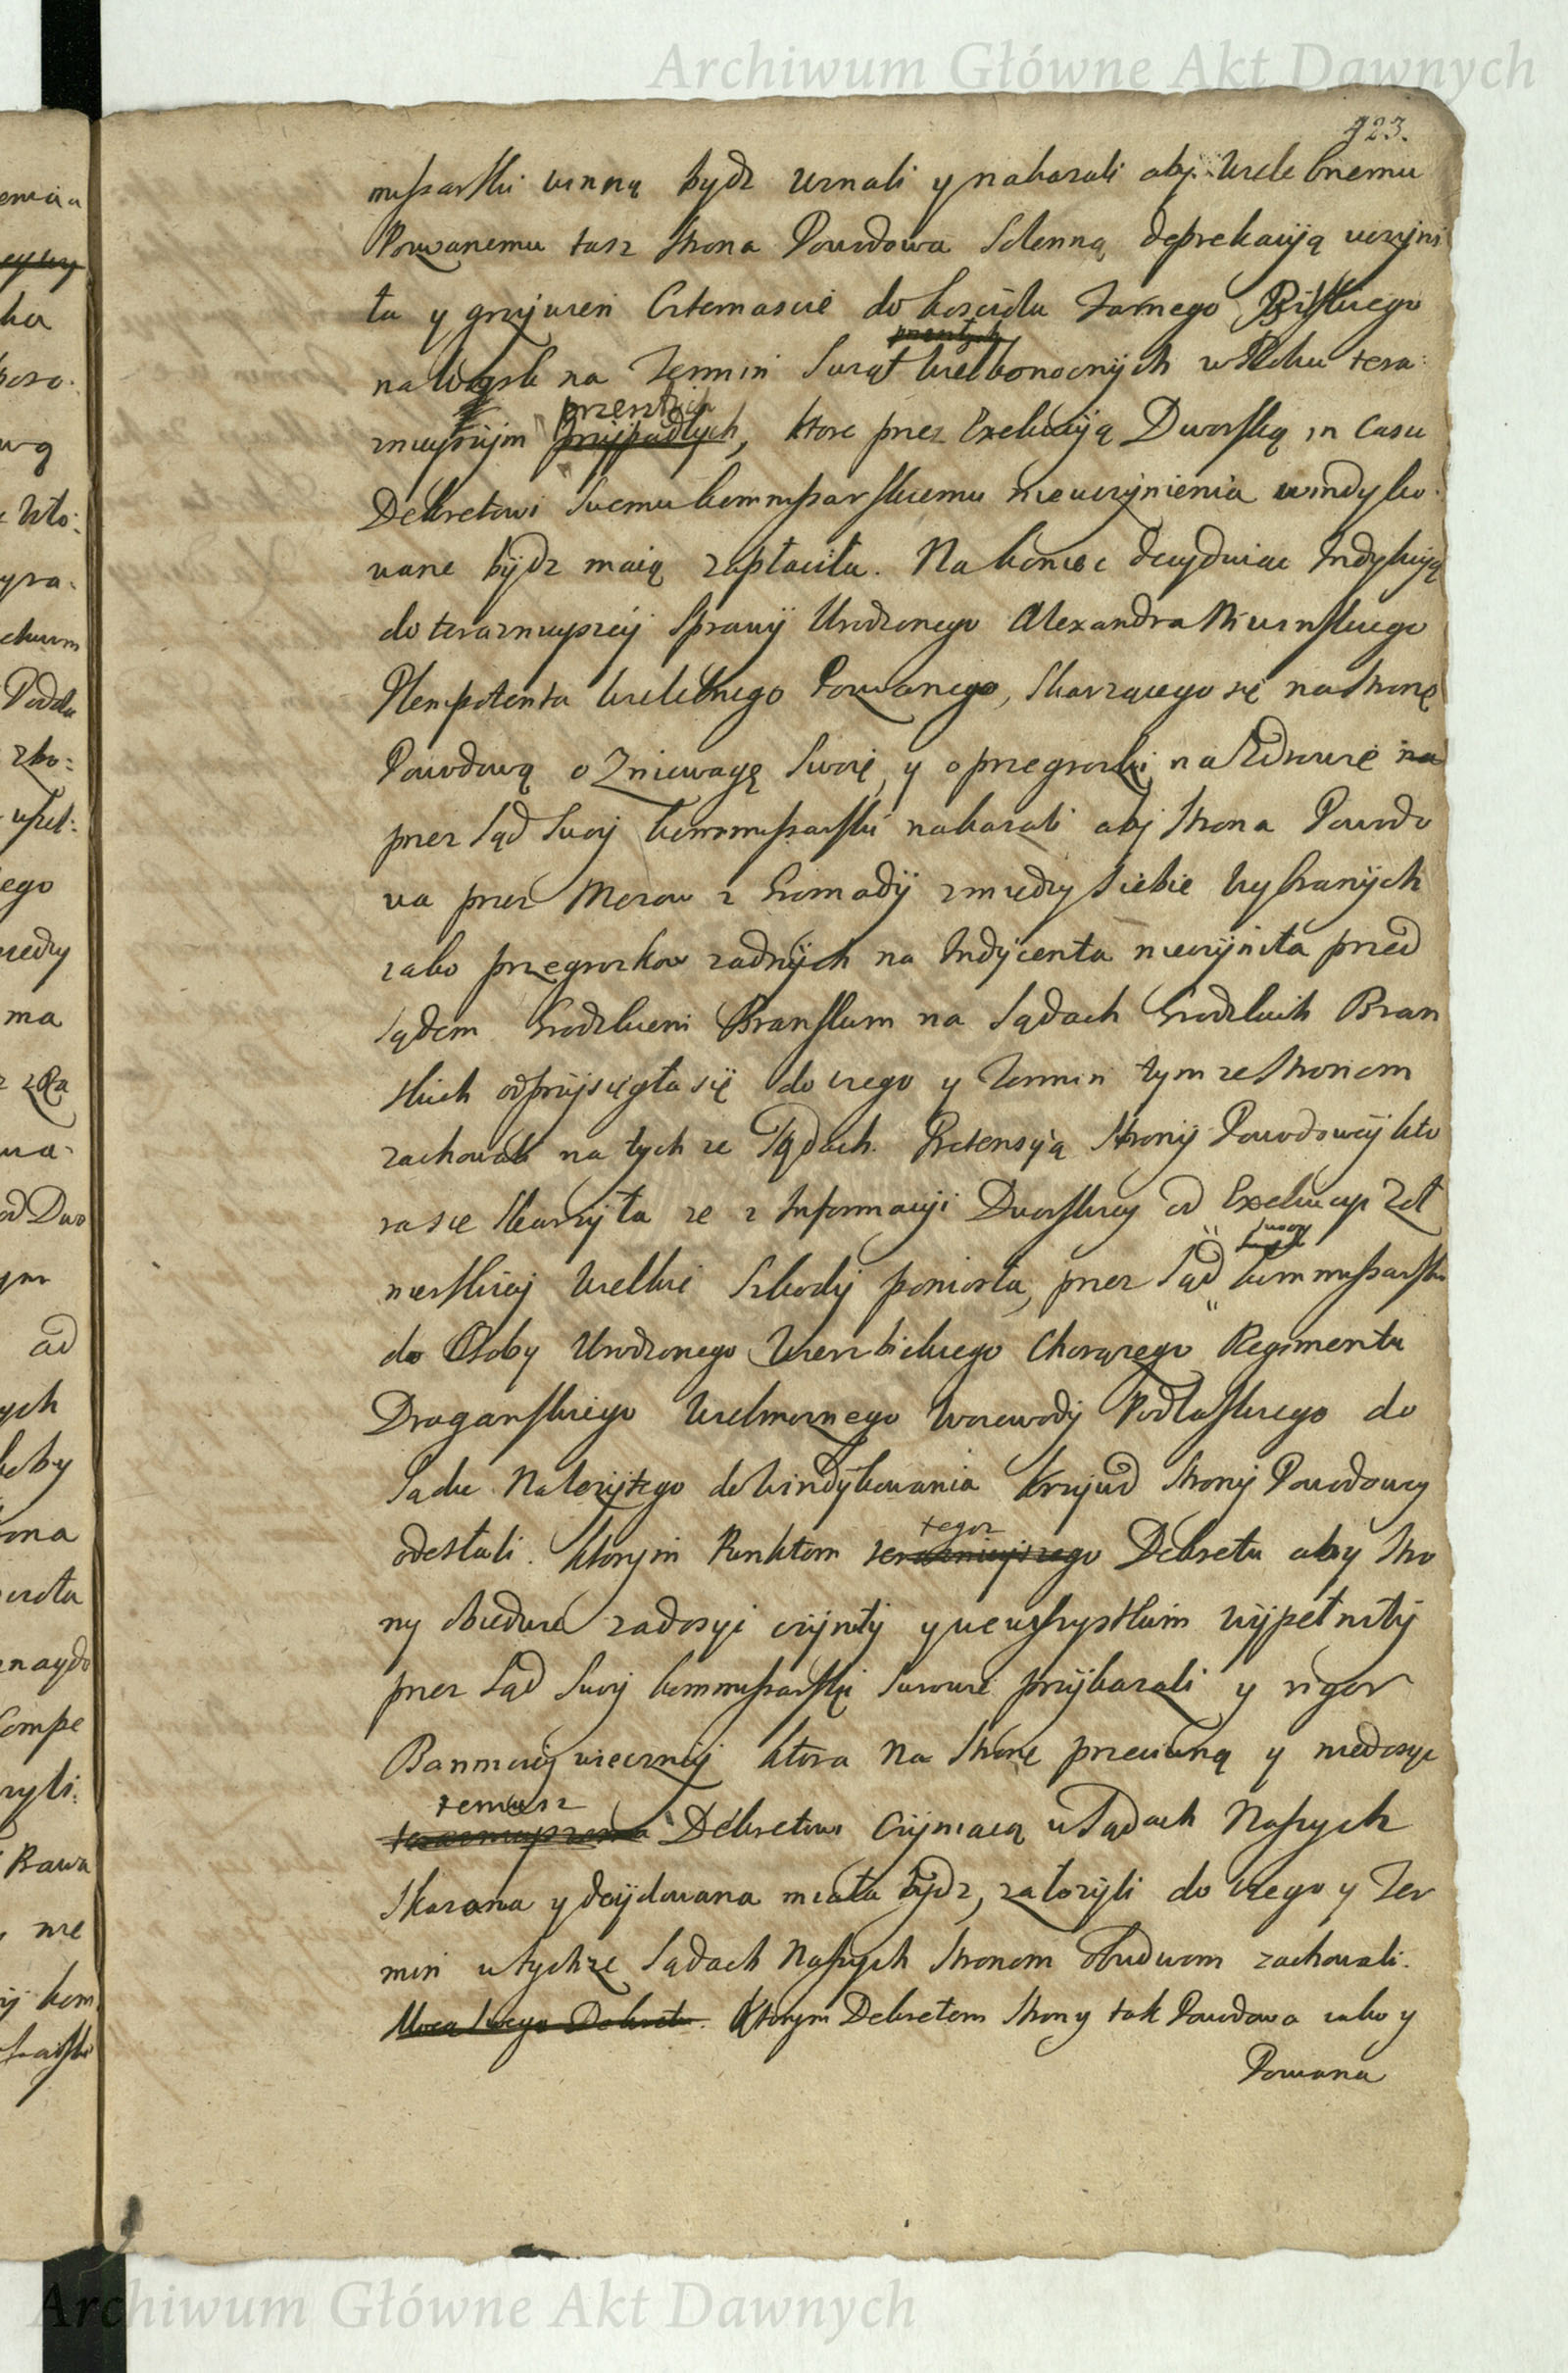 Archiwum Główne Akt Dawnych
423.
missarski winną bydz uznali y nakazali aby Wielebnemu
Pozwanemu tasz Strona Powodowa Solenną deprekacyją uczyni
ła y grzywien Czternascie do Koscioła Farnego Bielskiego
przeszłych
na Wosk na Termin Swiąt Wielkonocnych w Roku tera:
przeszłych
znieyszym przypadłych, ktore przez Exekucyją Dworską in Casu
Dekretowi Swemu kommissarskiemu nieuczynienia windyko:
wane bydz maią zapłaciła. Na koniec decyduiąc Indykcyją
do teraznieyszey Sprawy Urodzonego Alexandra
Plenipotenta Wielebnego Pozwanego, Skarzącego się na Stronę
Powodową o Zniewagę Swoię, y o przegrozki na Zdrowie na
przez Sąd Swoy kommissarski nakazali aby Strona Powodo
wa przez Męzow z Gromady zmiedzy siebie Wybranych
iako przegrozkow zadnych na Indycenta nieczyniła przed
Sądem Grodzkiem Branskim na Sądach Grodzkich Bran
skich odprzysięgła się do czego y Termin tym ze Stronom
zachowali na tych ze Sądach. Pretensyią Strony Powodowey kto
ra sie Skarzyła ze z Informacyi Dworskiey od Exekucyi Zoł
swoy
nierskiey Wielkie Szkody poniosła, przez Sąd kommissarski
do Osoby Urodzonego Chorązego Regimentu
Draganskiego Wielmoznego Woiewody Podlaskiego do
Sądu Nalezytego do windykowania Krzywd Strony Powodowey
tegoz
odesłali. Ktorym Punktom teraznieyszego Dekretu aby Stro
ny obiedwie zadosyć czyniły y we wszystkim wypełniły
przez Sąd Swoy kommissarski surowie przykazali y rigor
Bannicyi wieczney ktora na Stronę przeciwną y niedosyc
temusz
teraznieyszemu Dekretowi Czyniącą w Sądach Naszych
Skazana y decydowana miała bydz, załozyli do czego y Ter
min w tychze Sądach Naszych Stronom Obudwom zachowali.
Mocą Swego Dekretu. Ktorym Dekretem Strony tak Powodowa iako y
Pozwana
Archiwum Główne Akt Dawnych